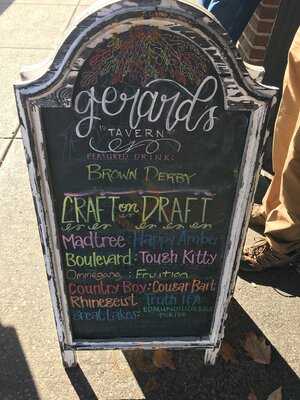 gerards
TAVERN
FEATURED DRINK:
BROWN DERBY
CRAFT on DRAFT
Madtree: Happy Amber
Boulevard: Tough Kitty
Ommegang: Fruition
Country Boy: Cougar Bait
Rhinegeist: Truth IPA
Great Lakes: EDMUND
PORTER